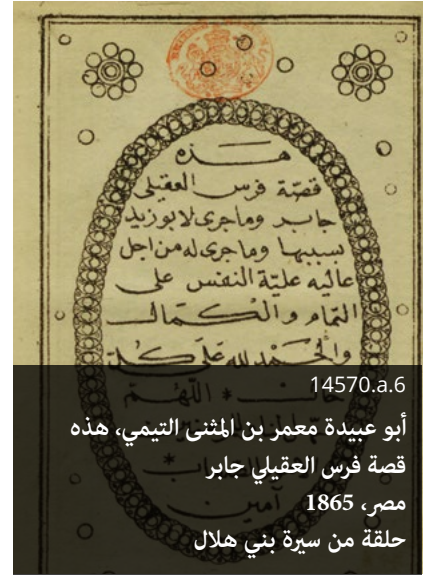 هذه
قصة فرس العقيلي
جابر وماجرى لابوزيد
بسببها وماجرى له من اجل
عاليه عليّة النفس على
التمام والكمال
والحمد لله على كل
حال * اللهم
آمين
14570.a.6
أبو عبيدة معمر بن المثنى التيمي، هذه
قصة فرس العقيلي جابر
مصر، 1865
حلقة من سيرة بني هلال